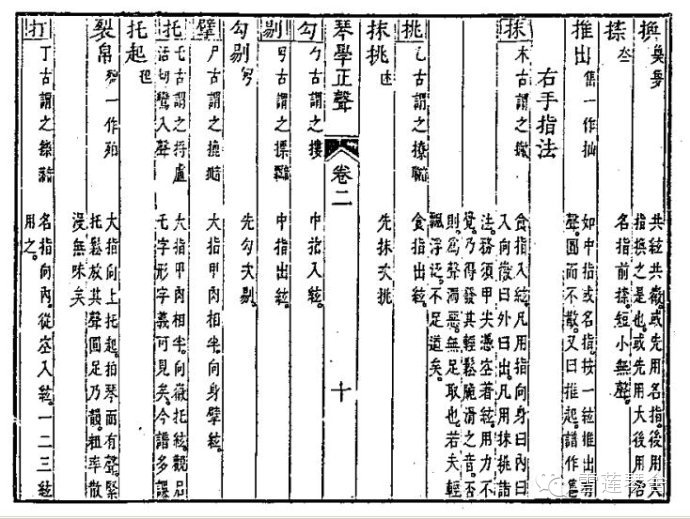 換 奐夛
共絃共徽。或先用名指。後用大
指換之是也。或先用大後用名
捺
名指前捺。短小無聲。
推出 一作抽
如中指或名指。按一絃推出有
聲。圓而不散。又曰推起。譜作
右手指法
抹 木古謂之
食指入絃。凡用指向身曰內曰
入向徽曰外曰出。凡用抹挑諸
法。務須甲尖懸空著絃。用力不
覺。乃得發其輕鬆脆滑之音。否
則。為聲濁惡。無足取也。若夫輕
飄浮泛。不足道矣。
挑 乚古謂之
食指出絃。
抹挑
先抹次挑
琴學正聲 卷二 十
勾 勹古謂之摟
中指入絃。
剔 古謂之
中指出絃。
勾剔
先勾次剔。
擘 尸古謂之
大指甲肉相半。向身擘絃。
托 乇古謂之
入聲
大指甲肉相半。向徽托絃。觀
乇字形字義可見矣。今譜多
托起
大指向上托起。拍琴面有聲。緊
托鬆放其聲圓足乃韻。粗率散
漫無味矣
裂帛 一作
打 丁古謂之
名指向內。從空入絃。一二三絃
用之。
雪莲琴舍